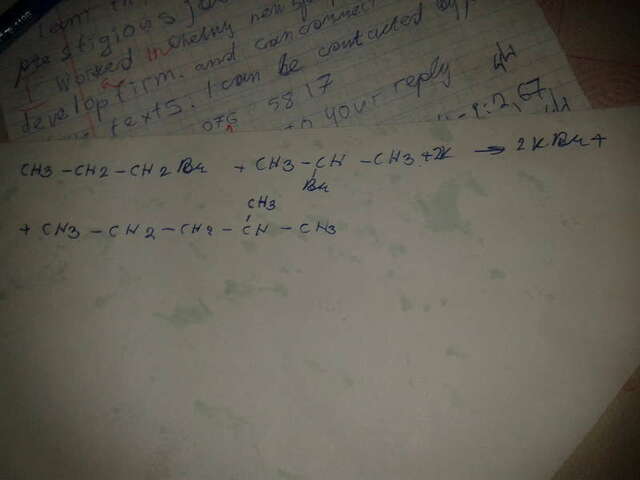 I am
prestigious
I worked
develop firm. and can connect
texts. I can be contacted
076 5817
your reply
2,67
CH3 - CH2 - CH2 Br + CH3 - CH - CH3 + 2K → 2K Br +
Br
CH3
+ CH3 - CH2 - CH2 - CH - CH3